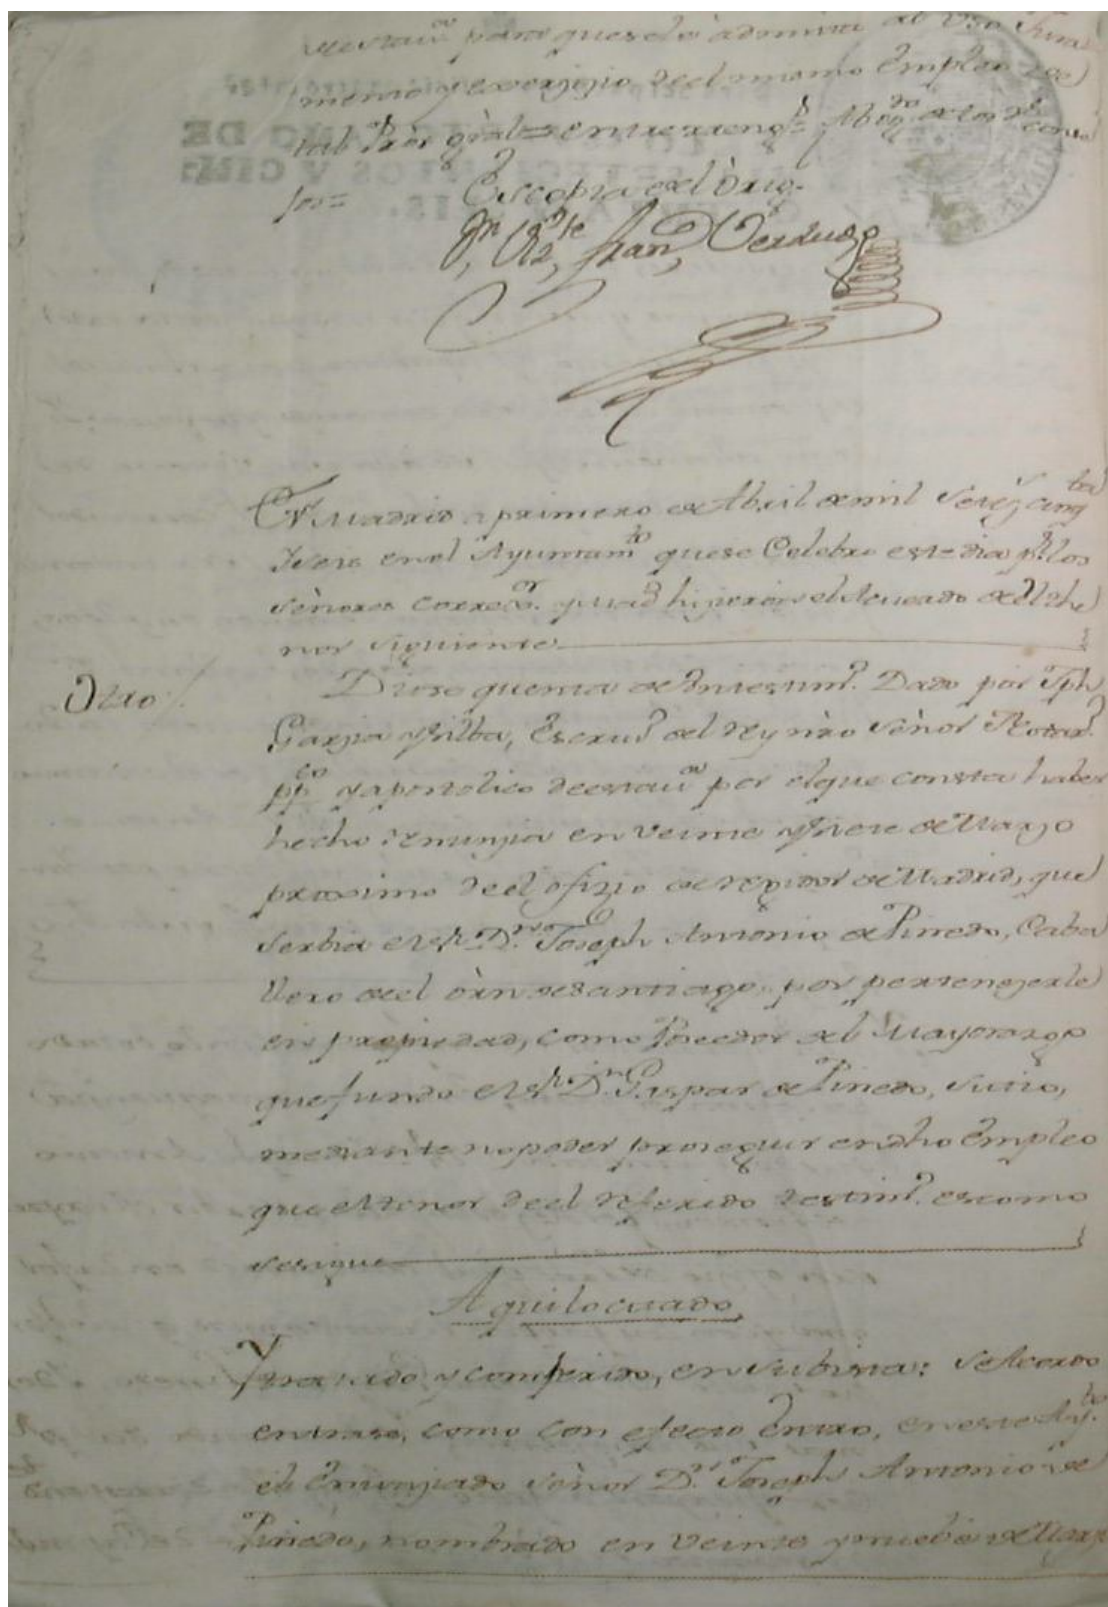 para que se le admita al Uso Jura
mento y exerzizio de el mismo Empleo de
tal Pror gral = entre reng.s = Abog.do de los R.s Conse
jos =
Es copia de el Orig.
Fran.co Verdugo
En Madrid a primero de Abril de mil Setez.s cinq.ta
y seis en el Ayuntam.to que se Celebro este dia p.r los
señores correg.or y mad.d hizieron el Acuerdo de el the
nor siguiente
Otro
Diose quenta de un testim.o Dado por Jph
Garzia y Silba, Escriu.o del Rey nro Señor Notar.o
pp.co y apostolico de esta u.a por el que consta haber
hecho renunzia en Veinte y siete de Marzo
proximo de el ofizio de rexidor de Madrid, que
Serbia el S.r D.n Joseph Antonio de Pinedo, Caba
llero de el orn de Santiago, por pertenezerle
en propiedad, como Poseedor del Mayorazgo
que fundo el S.r D.n Gaspar de Pinedo, su tio,
mediante no poder proseguir en dho Empleo
que el tenor de el referido testim.o es como
se sigue
Aqui lo citado
Y tratado y conferido, en su bista: se Acordo
entrase, como con efecto Entro, en este Ay.to
el Enunziado Señor D.n Joseph Antonio de
Pinedo, nombrado en Veinte y nuebe de Marzo